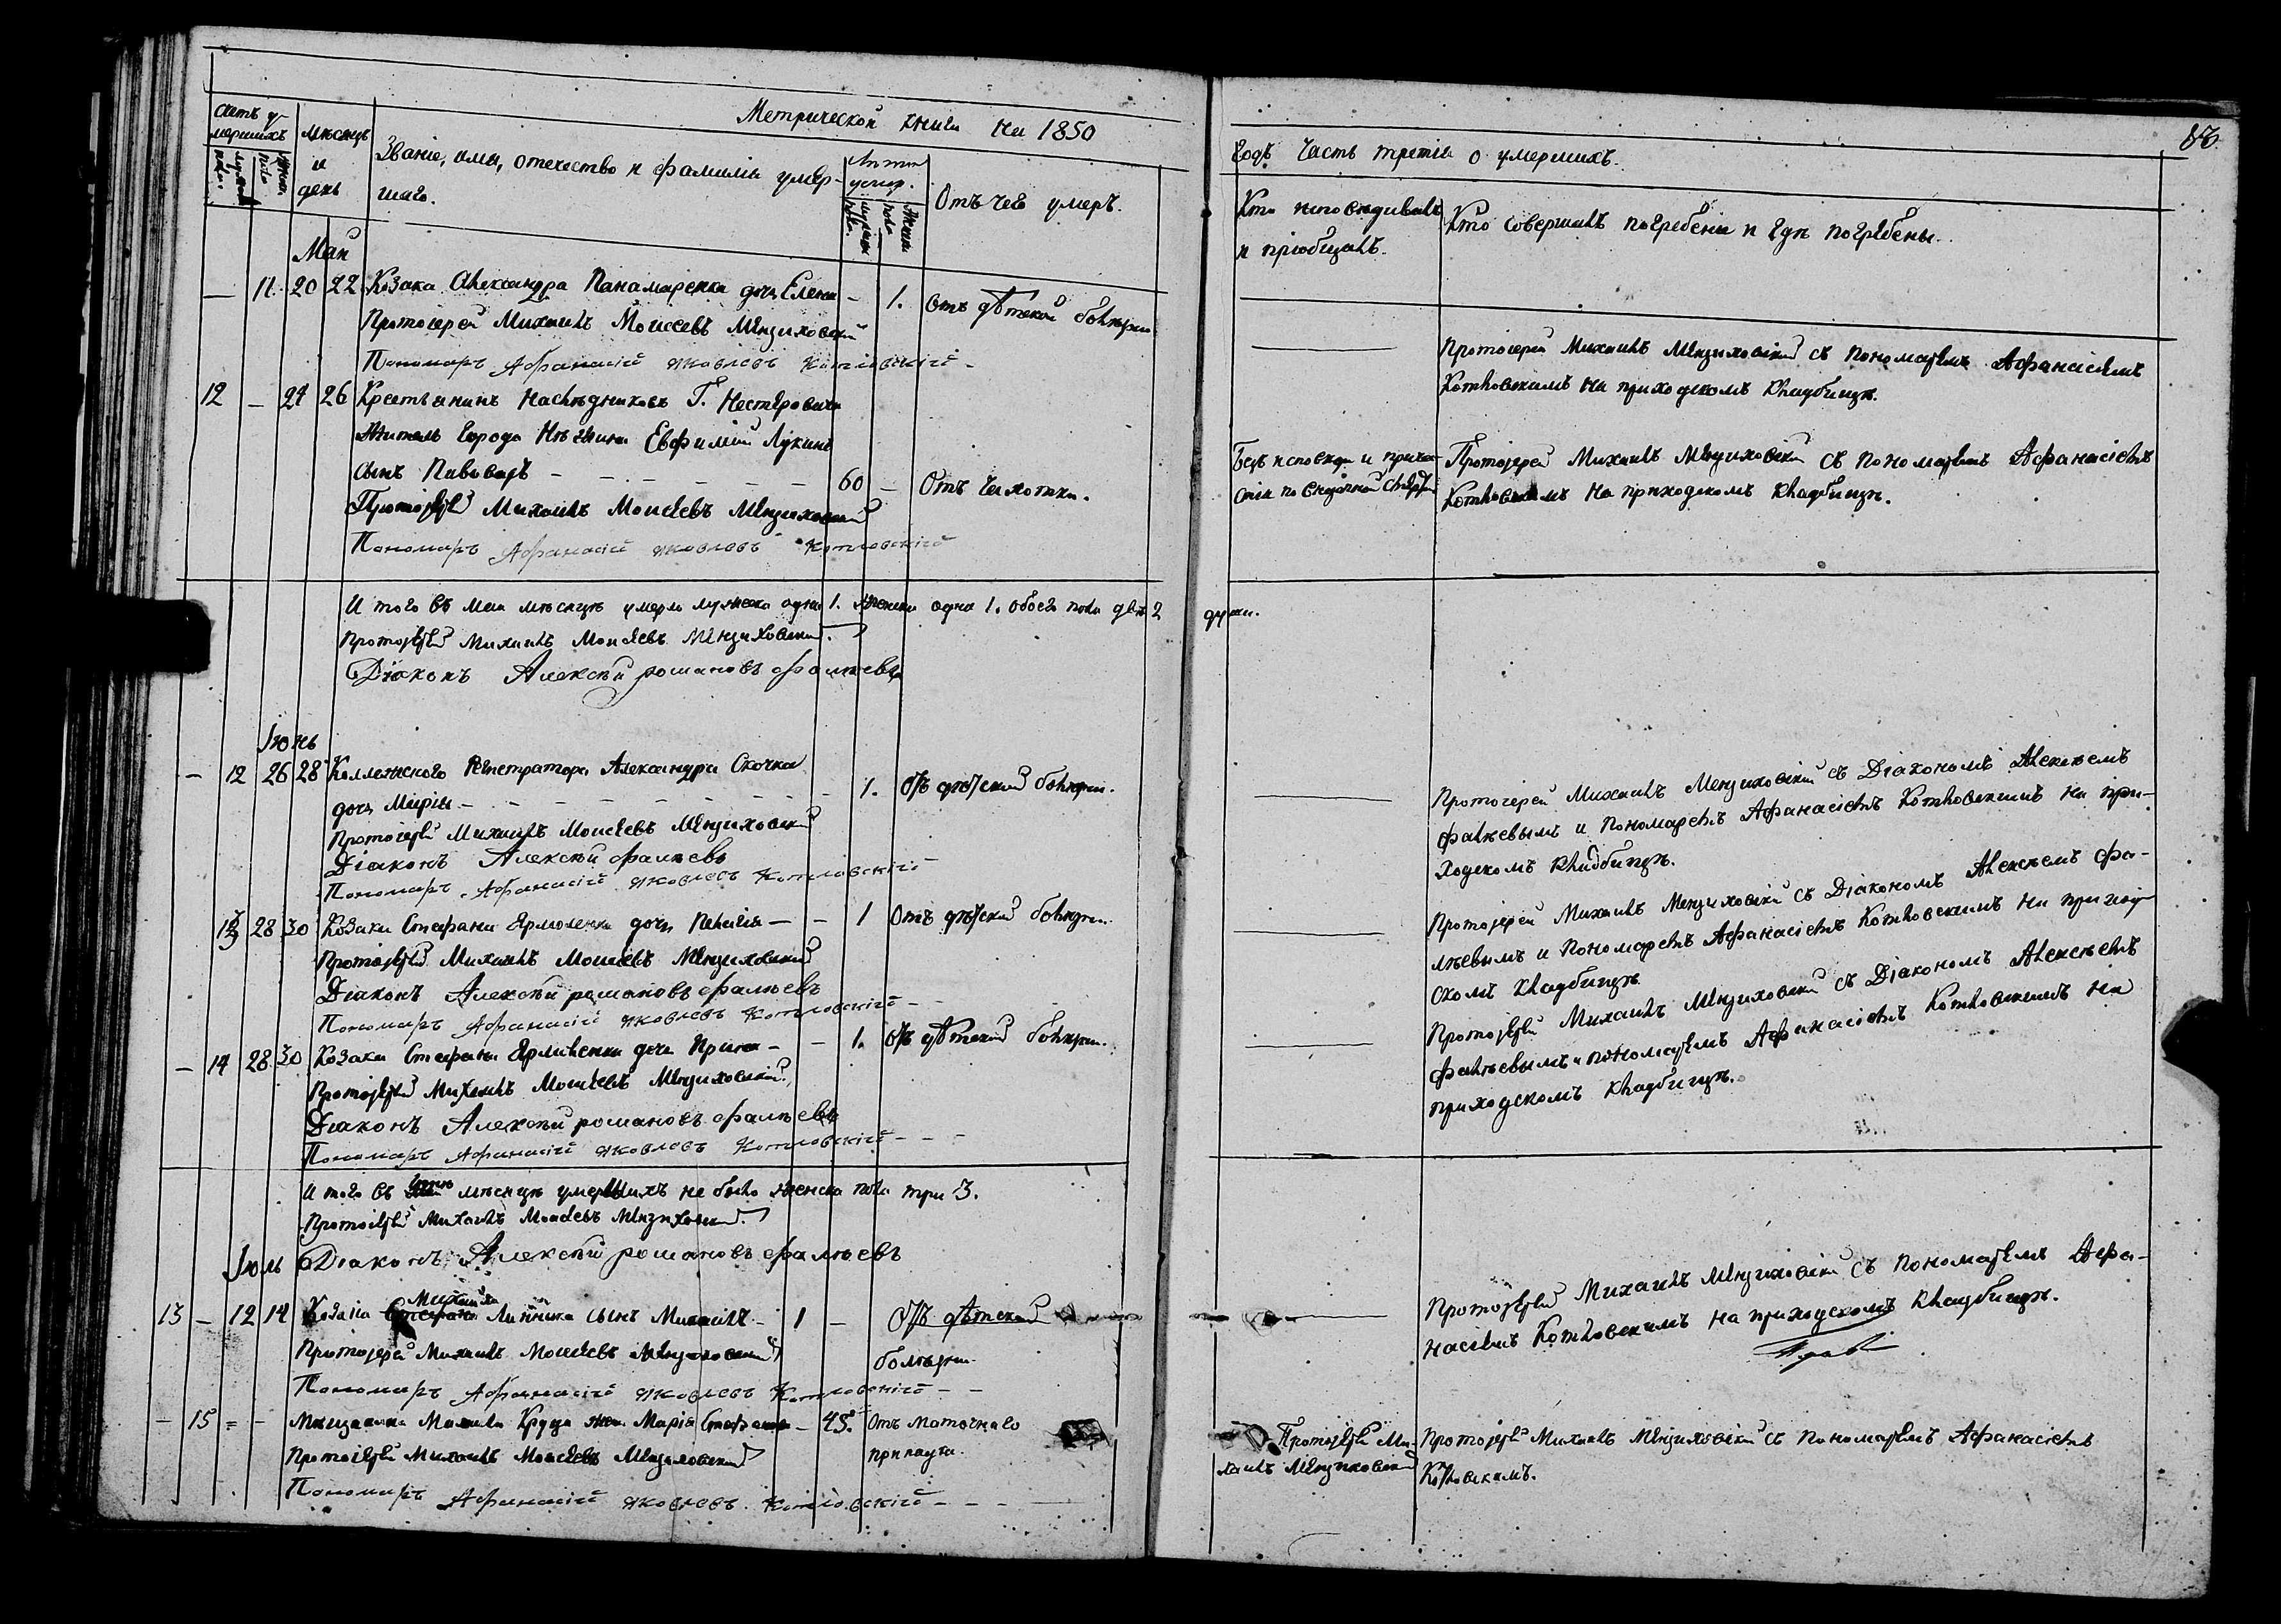 Метрической книги на 1850
Счетъ умершихъ
мужеска пола
женска пола
мѣсяцъ и день
Званіе, имя, отечество и фамилія умер-
шаго.
Лѣта умер.
мужеска пола
женска пола
Отъ чего умеръ.
Май
— 11. 20 22 Козака Александра Панамаренка дочь Елена — 1. Отъ дѣтской болѣзни
Протоіерей Михаилъ Моисеевъ Мензиховскій
Пономарь Афанасій Яковлевъ Котловскій —
12 — 24 26 Крестьянинъ Наслѣдниковъ Г. Нестеровича
Житель Города Нѣжина Евфимій Лукинъ
сынъ Пивоваръ — 60 — Отъ Чахотки.
Протоіерей Михаилъ Моисеевъ Мензиховскій
Пономарь Афанасій Яковлевъ Котловскій
И того въ Маи мѣсяцѣ умерло мужеска одна 1. женска одна 1. обоего пола двѣ 2
Протоіерей Михаилъ Моисеевъ Мензиховскій.
Діаконъ Алексѣй романовъ фалѣевъ
Іюнь
— 12 26 28 Коллежского Регистратора Александра Скочка
дочь Марія — 1. Отъ дѣтской болѣзни.
Протоіерей Михаилъ Моисеевъ Мензиховскій
Діаконъ Алексѣй фалѣевъ
Пономарь Афанасій Яковлевъ Котловскій
13 28 30 Козака Стефана Ярмоленка дочь Пелагія — 1 Отъ дѣтской болѣзни.
Протоіерей Михаилъ Моисеевъ Мензиховскій
Діаконъ Алексѣй романовъ фалѣевъ
Пономарь Афанасій Яковлевъ Котловскій —
— 14 28 30 Козака Стефана Ярмоленка дочь Ирина — 1. Отъ дѣтской болѣзни.
Протоіерей Михаилъ Моисеевъ Мензиховскій
Діаконъ Алексѣй романовъ фалѣевъ
Пономарь Афанасій Яковлевъ Котловскій — — —
И того въ Іюнѣ мѣсяцѣ умершихъ не было женска пола три 3.
Протоіерей Михаилъ Моисеевъ Мензиховскій.
Іюль Діаконъ Алексѣй романовъ фалѣевъ
13 — 12 14 Козака Михаила Линника сынъ Михаилъ — 1 — Отъ дѣтской
Протоіерей Михаилъ Моисеевъ Мензиховскій болѣзни.
Пономарь Афанасій Яковлевъ Котловскій — —
— 15 = — Мѣщанина Крузя жена Марія Стефанова — 45. Отъ маточнаго
Протоіерей Михаилъ Моисеевъ Мензиховскій припадка.
Пономарь Афанасій Яковлевъ Котловскій — — —
Годъ Часть третія о умершихъ.
Кто исповѣдывалъ
и пріобщалъ.
Кто совершалъ погребеніе и гдѣ погребены.
Протоіерей Михаилъ Мензиховскій съ пономаремъ Афанасіемъ
Котловскимъ на приходскомъ кладбищѣ.
Безъ исповѣди и прича-
стія по внезапной смерти
Протоіерей Михаилъ Мензиховскій съ пономаремъ Афанасіемъ
Котловскимъ на приходскомъ кладбищѣ.
души.
Протоіерей Михаилъ Мензиховскій съ Діакономъ Алексѣемъ
фалѣевымъ и пономаремъ Афанасіемъ Котловскимъ на при-
ходскомъ кладбищѣ.
Протоіерей Михаилъ Мензиховскій съ Діакономъ Алексѣемъ фа-
лѣевымъ и пономаремъ Афанасіемъ Котловскимъ на приход
скомъ кладбищѣ
Протоіерей Михаилъ Мензиховскій съ Діакономъ Алексѣемъ
фалѣевымъ и пономаремъ Афанасіемъ Котловскимъ на
приходскомъ кладбищѣ.
Протоіерей Михаилъ Мензиховскій съ пономаремъ Афа-
насіемъ Котловскимъ на приходскомъ кладбищѣ.
Протоіерей Ми-
хаилъ Мензиховскій
Протоіерей Михаилъ Мензиховскій съ пономаремъ Афанасіемъ
Котловскимъ.